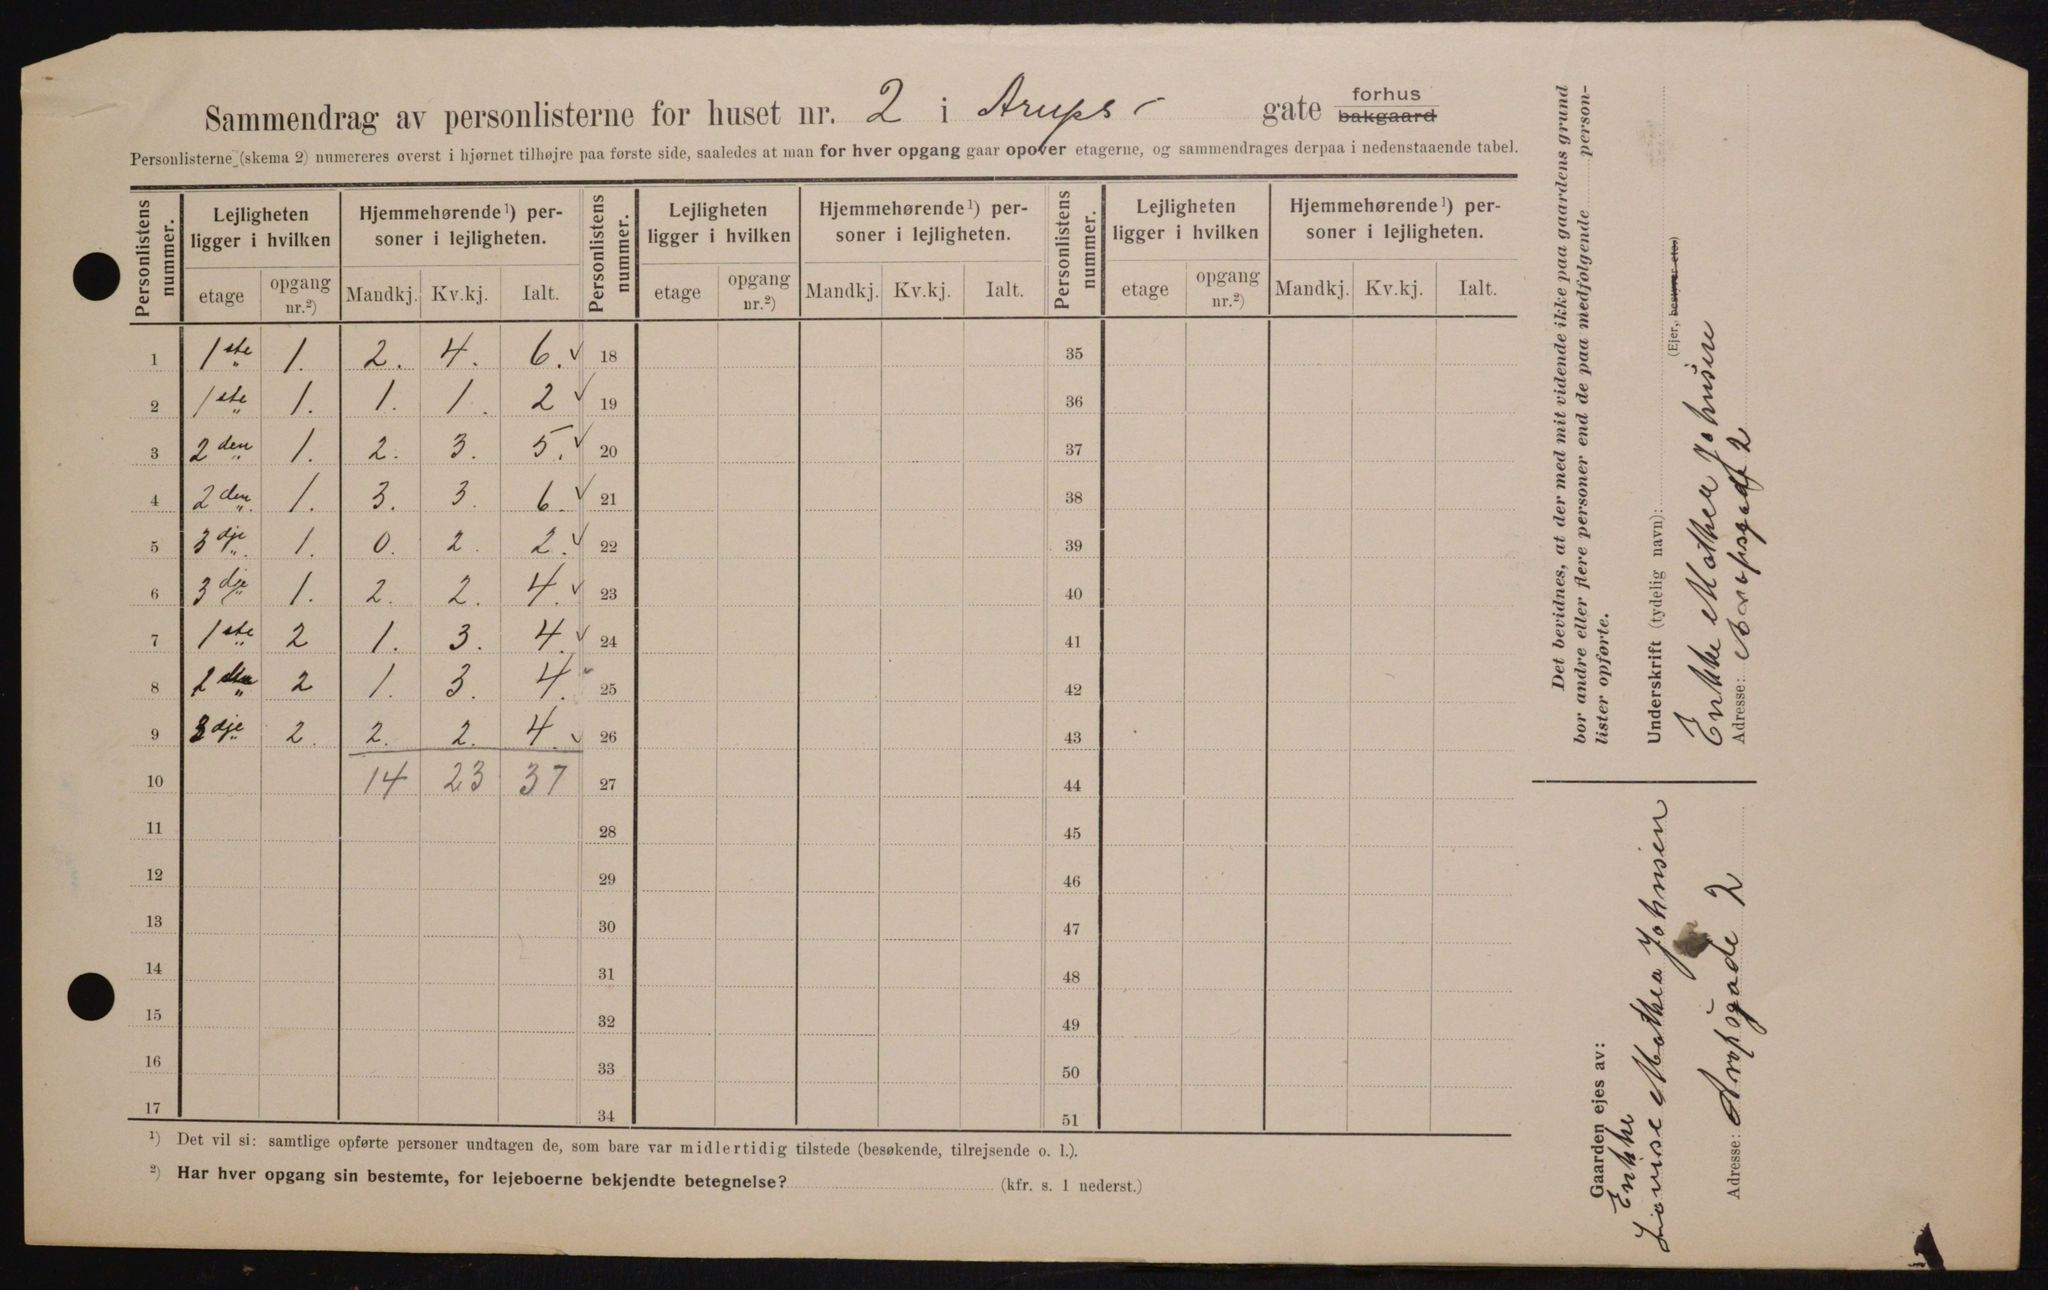 Sammendrag av personlisterne for huset nr. 2 i Arups- gate forhus bakgaard
Personlisterne (skema 2) numereres øverst i hjørnet tilhøjre paa første side, saaledes at man for hver opgang gaar opover etagerne, og sammendrages derpaa i nedenstaaende tabel.
Personlistens nummer. Lejligheten ligger i hvilken Hjemmehørende ¹) personer i lejligheten. Personlistens nummer. Lejligheten ligger i hvilken Hjemmehørende ¹) personer i lejligheten. Personlistens nummer. Lejligheten ligger i hvilken Hjemmehørende ¹) personer i lejligheten.
etage opgang nr.²) Mandkj. Kv.kj. Ialt. etage opgang nr.²) Mandkj. Kv.kj. Ialt. etage opgang nr.²) Mandkj. Kv.kj. Ialt.
1 1ste 1. 2. 4. 6. ✓ 18 35
2 1ste 1. 1. 1. 2 ✓ 19 36
3 2den 1. 2. 3. 5. ✓ 20 37
4 2den 1. 3. 3. 6. ✓ 21 38
5 3dje 1. 0. 2. 2. ✓ 22 39
6 3dje 1. 2. 2. 4. ✓ 23 40
7 1ste 2 1. 3. 4. ✓ 24 41
8 2den 2 1. 3. 4. 25 42
9 3dje 2. 2. 2. 4. ✓ 26 43
10 14 23 37 27 44
11 28 45
12 29 46
13 30 47
14 31 48
15 32 49
16 33 50
17 34 51
¹) Det vil si: samtlige opførte personer undtagen de, som bare var midlertidig tilstede (besøkende, tilrejsende o. l.).
²) Har hver opgang sin bestemte, for lejeboerne bekjendte betegnelse? (kfr. s. 1 nederst.)
Det bevidnes, at der med mit vidende ikke paa gaardens grund
bor andre eller flere personer end de paa medfølgende personlister opførte.
Underskrift (tydelig navn):
(Ejer, bestyrer etc.)
Enkke Mathea Johnsen
Adresse: Arupsgade 2
Gaarden ejes av:
Enkke
Lovise Mathea Johnsen
Adresse: Arupsgade 2